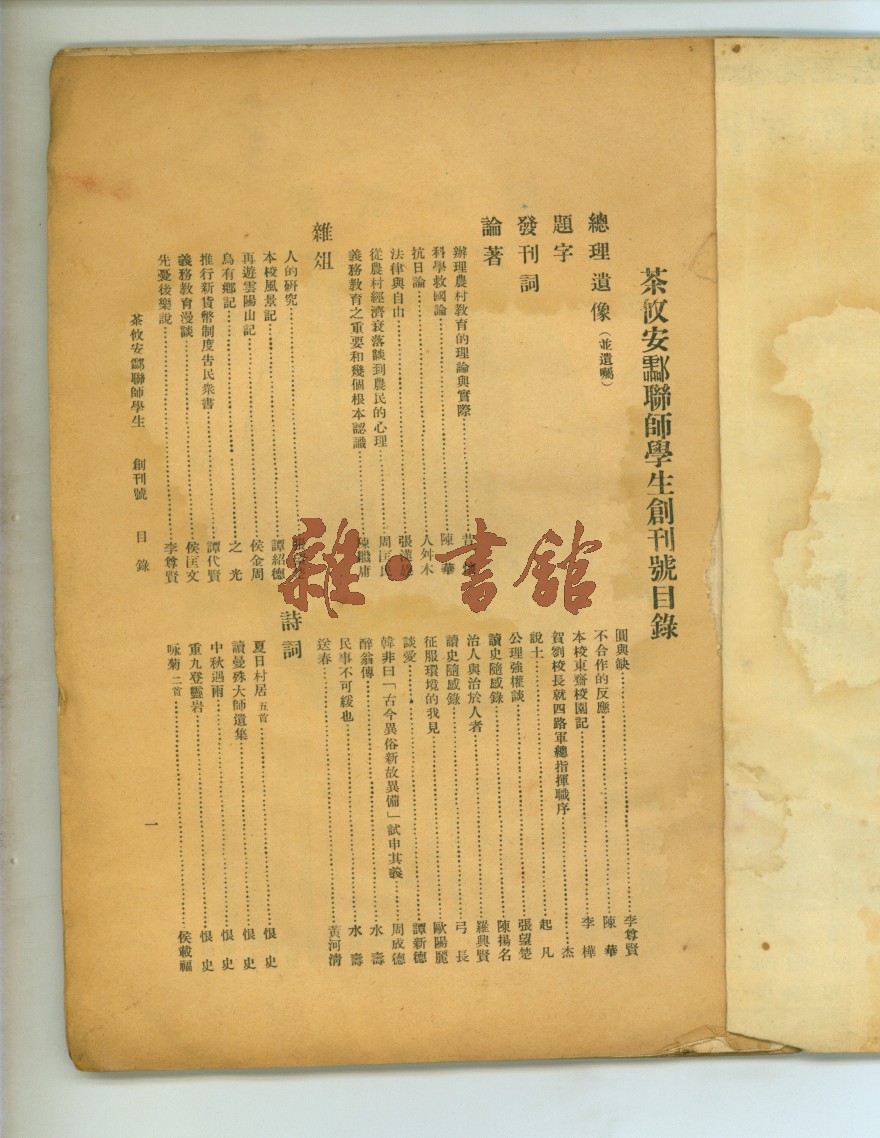 茶攸安酃聯師學生創刊號目錄
總理遺像(並遺囑)
題字
發刊詞
論著
辦理農村教育的理論與實際
科學救國論 陳華
抗日論 人舛木
法律與自由
從農村經濟衰落談到農民的心理 周匡民
義務教育之重要和幾個根本認識
雜俎
人的研究
本校風景記 譚紹德
再遊雲陽山記 侯金周
烏有鄉記 之光
推行新貨幣制度告民衆書 譚代賢
義務教育漫談 侯匡文
先憂後樂說 李尊賢
圓與缺 李尊賢
不合作的反應 陳華
本校東齋校園記 李樺
賀劉校長就四路軍總指揮職序 杰
說士 起凡
公理強權談 張望楚
讀史隨感錄 陳揚名
治人與治於人者 羅興賢
讀史隨感錄 弓長
征服環境的我見 歐陽麗
談愛 譚新德
韓非曰「古今異俗新故異備」試申其義 周成德
醉翁傳 水壽
民事不可緩也 水壽
送春 黃河清
詩詞
夏日村居 五首 恨史
讀曼殊大師遺集 恨史
中秋遇雨 恨史
重九登靈岩 恨史
咏菊 二首 侯載福
茶攸安酃聯師學生 創刊號 目錄
一
雜·書館